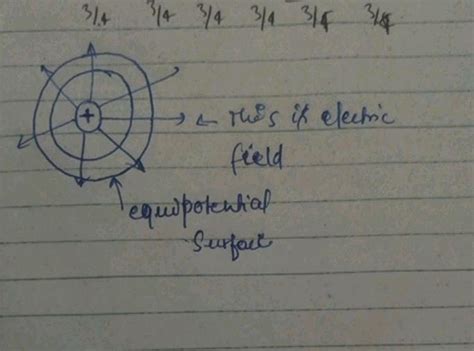 3/4 3/4 3/4 3/4 3/4 3/4
+
← This is electric
field
equipotential
Surface